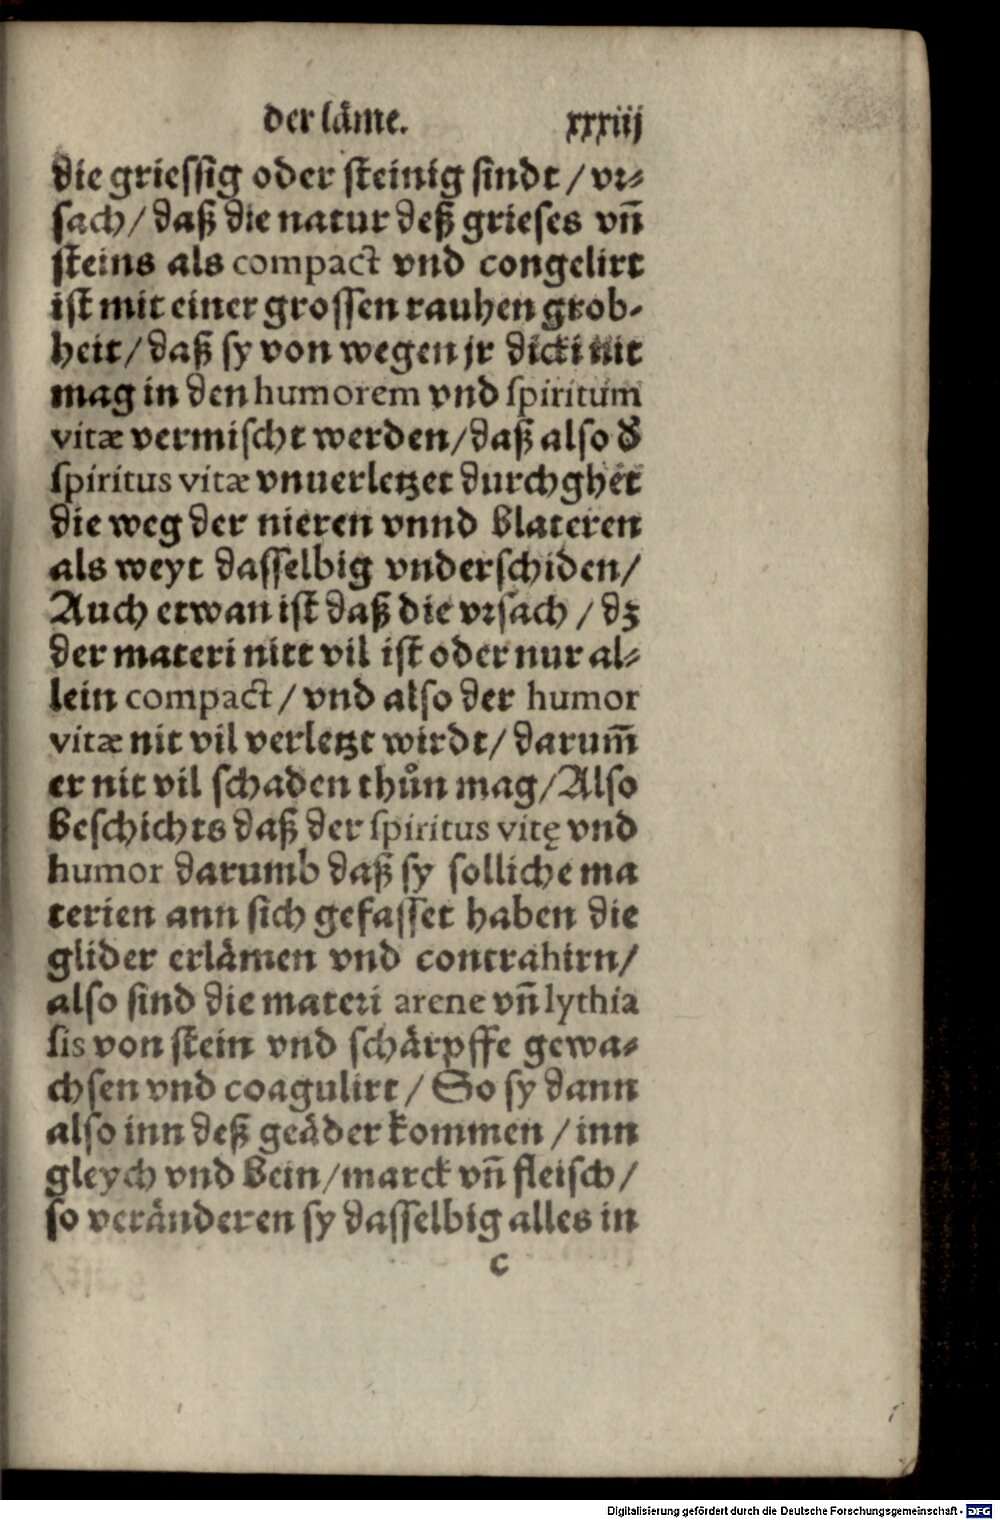 der låme. xxxiij
die griessig oder steinig sindt / vr⸗
sach / daß die natur deß grieses vñ
steins als compact vnd congelirt
ist mit einer grossen rauhen grob⸗
heit / daß sy von wegen jr dicki nit
mag in den humorem vnd spiritum
vitæ vermischt werden / daß also d̕
spiritus vitæ vnuerletzet durchghet
die weg der nieren vnnd blateren
als weyt dasselbig vnderschiden /
Auch etwan ist daß die vrsach / dz
der materi nitt vil ist oder nur al⸗
lein compact / vnd also der humor
vitæ nit vil verletzt wirdt / darum̃
er nit vil schaden thůn mag / Also
beschichts daß der spiritus vitę vnd
humor darumb daß sy solliche ma
terien ann sich gefasset haben die
glider erlåmen vnd contrahirn /
also sind die materi arene vñ lythia
sis von stein vnd schårpffe gewa⸗
chsen vnd coagulirt / So sy dann
also inn deß geåder kommen / inn
gleych vnd bein / marck vñ fleisch /
so verånderen sy dasselbig alles in
c
Digitalisierung gefördert durch die Deutsche Forschungsgemeinschaft - DFG